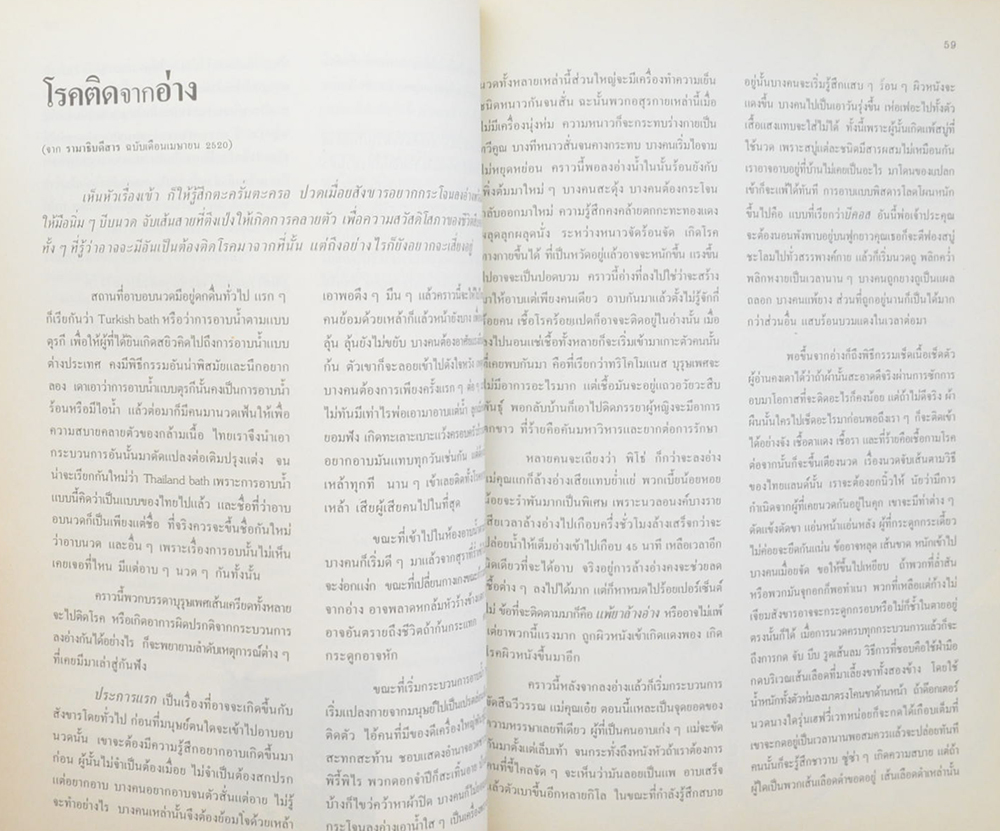 โรคติดจากอ่าง
(จาก รามาธิบดีสาร ฉบับเดือนเมษายน 2520)
เห็นหัวเรื่องเข้า ก็ให้รู้สึกตะครั่นตะครอ ปวดเมื่อยสังขารอยากกระโจนลงอ่าง
ให้มือนิ่ม ๆ บีบนวด จับเส้นสายที่ตึงเป๋งให้เกิดการคลายตัว เพื่อความสวัสดิโสภาของชีวิต
ทั้ง ๆ ที่รู้ว่าอาจจะมีอันเป็นต้องติดโรคมาจากที่นั้น แต่ถึงอย่างไรก็ยังอยากจะเสี่ยงอยู่
สถานที่อาบอบนวดมีอยู่ดกดื่นทั่วไป แรก ๆ
ก็เรียกกันว่า Turkish bath หรือว่าการอาบน้ำตามแบบ
ตุรกี เพื่อให้ผู้ที่ได้ยินเกิดสยิวคิดไปถึงการอาบน้ำแบบ
ต่างประเทศ คงมีพิธีกรรมอันน่าพิสมัยและนึกอยาก
ลอง เดาเอาว่าการอาบน้ำแบบตุรกีนั้นคงเป็นการอาบน้ำ
ร้อนหรือมีไอน้ำ แล้วต่อมาก็มีคนมานวดเฟ้นให้เพื่อ
ความสบายคลายตัวของกล้ามเนื้อ ไทยเราจึงนำเอา
กระบวนการอันนั้นมาดัดแปลงต่อเติมปรุงแต่ง จน
น่าจะเรียกกันใหม่ว่า Thailand bath เพราะการอาบน้ำ
แบบนี้คิดว่าเป็นแบบของไทยไปแล้ว และชื่อที่ว่าอาบ
อบนวดก็เป็นเพียงแต่ชื่อ ที่จริงควรจะขึ้นชื่อกันใหม่
ว่าอาบนวด และอื่น ๆ เพราะเรื่องการอบนั้นไม่เห็น
เคยเจอที่ไหน มีแต่อาบ ๆ นวด ๆ กันทั้งนั้น
คราวนี้พวกบรรดาบุรุษเพศเส้นเครียดทั้งหลาย
จะไปติดโรค หรือเกิดอาการผิดปรกติจากกระบวนการ
ลงอ่างกันได้อย่างไร ก็จะพยายามลำดับเหตุการณ์ต่าง ๆ
ที่เคยมีมาเล่าสู่กันฟัง
ประการแรก เป็นเรื่องที่อาจจะเกิดขึ้นกับ
สังขารโดยทั่วไป ก่อนที่มนุษย์ตนใดจะเข้าไปอาบอบ
นวดนั้น เขาจะต้องมีความรู้สึกอยากอาบเกิดขึ้นมา
ก่อน ผู้นั้นไม่จำเป็นต้องเมื่อย ไม่จำเป็นต้องสกปรก
แต่อยากอาบ บางคนอยากอาบจนตัวสั่นแต่อาย ไม่รู้
จะทำอย่างไร บางคนเหล่านั้นจึงต้องย้อมใจด้วยเหล้า
เอาพอตึง ๆ มึน ๆ แล้วคราวนี้จะได้
คนย้อมด้วยเหล้าก็แล้วหน้ายังบาง
ลุ้น ลุ้นยังไม่ขยับ บางคนต้องอาศัย
กัน ตัวเขาก็จะลอยเข้าไปดังใจหวัง
บางคนต้องการเพียงครั้งแรก ๆ ต่อ ๆ
ไม่ทันมีเท่าไรพ่อเอามาอาบแต่น้ำ
ยอมฟัง เกิดทะเลาะเบาะแว้งครอบครัว
อยากอาบมันแทบทุกวันเช่นกัน
เหล้าทุกที นาน ๆ เข้าเลยติดทั้ง
เหล้า เสียผู้เสียคนไปในที่สุด
ขณะที่เข้าไปในห้องอาบน้ำ
บางคนก็เริ่มดี ๆ มาแล้วจากสุรา
จะง่อกแง่ก ขณะที่เปลี่ยนกางเกง
จากอ่าง อาจพลาดหกล้มหัวร้างข้าง
อาจอันตรายถึงชีวิตถ้ากันกระแทก
กระดูกอาจหัก
ขณะที่เริ่มกระบวนการอาบน้ำ
เริ่มแปลงกายจากมนุษย์ไปเป็นเปรต
ติดตัว ไอ้คนที่มีของดีเครื่องใหญ่
สะทกสะท้าน ชอบแสดงอำนาจอวด
พิรี้พิไร พวกดอกจำปีก็สะเทิ้นอาย
บ้างก็ไขว่คว้าหาผ้าปิด บางคนก็ไม่
กระโจนลงอ่างเอาน้ำใส ๆ เป็นเครื่อง
59
นวดทั้งหลายเหล่านี้ส่วนใหญ่จะมีเครื่องทำความเย็น
ชนิดหนาวกันจนสั่น ฉะนั้นพวกอสุรกายเหล่านี้เมื่อ
ไม่มีเครื่องนุ่งห่ม ความหนาวก็จะกระทบร่างกายเป็น
ทวีคูณ บางทีหนาวสั่นจนคางกระทบ บางคนเริ่มไอจาม
ไม่หยุดหย่อน คราวนี้พอลงอ่างน้ำในนั้นร้อนยังกับ
พึ่งต้มมาใหม่ ๆ บางคนสะดุ้ง บางคนต้องกระโจน
กลับออกมาใหม่ ความรู้สึกคงคล้ายตกกะทะทองแดง
ลุดลุกผลุดนั่ง ระหว่างหนาวจัดร้อนจัด เกิดโรค
ทางกายขึ้นได้ ที่เป็นหวัดอยู่แล้วอาจจะหนักขึ้น แรงขึ้น
ไปอาจจะเป็นปอดบวม คราวนี้อ่างที่ลงไปใช่ว่าจะสร้าง
มาให้อาบแต่เพียงคนเดียว อาบกันมาแล้วตั้งไม่รู้จักกี่
ร้อยคน เชื้อโรคร้อยแปดก็อาจจะติดอยู่ในอ่างนั้น เมื่อ
ลงไปนอนแช่เชื้อทั้งหลายก็จะเริ่มเข้ามาเกาะตัวคนนั้น
ที่เคยพบกันมา คือที่เรียกว่าทริโคโมแนส บุรุษเพศจะ
ไม่มีอาการอะไรมาก แต่เชื้อมันจะอยู่แถวอวัยวะสืบ
พันธุ์ พอกลับบ้านก็เอาไปติดภรรยาผู้หญิงจะมีอาการ
ตกขาว ที่ร้ายคือคันมหาวิหารและยากต่อการรักษา
หลายคนจะเถียงว่า พิโธ่ ก็กว่าจะลงอ่าง
แม่คุณแกก็ล้างอ่างเสียแทบย่ำแย่ พวกเบี้ยน้อยหอย
น้อยจะรำพันมากเป็นพิเศษ เพราะนวลอนงค์บางราย
เสียเวลาล้างอ่างไปเกือบครึ่งชั่วโมงล้างเสร็จกว่าจะ
ปล่อยน้ำให้เต็มอ่างเข้าไปเกือบ 45 นาที เหลือเวลาอีก
นิดเดียวที่จะได้อาบ จริงอยู่การล้างอ่างคงจะช่วยลด
เชื้อต่าง ๆ ลงไปได้มาก แต่ก็หาหมดไปร้อยเปอร์เซ็นต์
ไม่ ข้อที่จะติดตามมาก็คือ แพ้ยาล้างอ่าง หรืออาจไม่แพ้
แต่ยาพวกนี้แรงมาก ถูกผิวหนังเข้าเกิดแดงพอง เกิด
โรคผิวหนังขึ้นมาอีก
คราวนี้หลังจากลงอ่างแล้วก็เริ่มกระบวนการ
ขัดสีฉวีวรรณ แม่คุณเอ๋ย ตอนนี้แหละเป็นจุดยอดของ
ความหรรษาเลยทีเดียว ผู้ที่เป็นคนอาบเก่ง ๆ แม่จะขัด
กันมาตั้งแต่เล็บเท้า จนกระทั่งถึงหนังหัวถ้าเราต้องการ
คนที่ขี้ไคลจัด ๆ จะเห็นว่ามันลอยเป็นแพ อาบเสร็จ
แล้วตัวเบาขึ้นอีกหลายกิโล ในขณะที่กำลังรู้สึกสบาย
อยู่นั้นบางคนจะเริ่มรู้สึกแสบ ๆ ร้อน ๆ ผิวหนังจะ
แดงขึ้น บางคนไปเป็นเอาวันรุ่งขึ้น เห่อเฟอะไปทั้งตัว
เสื้อแสงแทบจะใส่ไม่ได้ ทั้งนี้เพราะผู้นั้นเกิดแพ้สบู่ที่
ใช้นวด เพราะสบู่แต่ละชนิดมีสารผสมไม่เหมือนกัน
เราอาจอาบอยู่ที่บ้านไม่เคยเป็นอะไร มาโดนของแปลก
เข้าก็จะแพ้ได้ทันที การอาบแบบพิสดารโลดโผนหนัก
ขึ้นไปคือ แบบที่เรียกว่าบีคอส อันนี้พ่อเจ้าประคุณ
จะต้องนอนพังพาบอยู่บนฟูกยาวคุณเธอก็จะตีฟองสบู่
ชะโลมไปทั่วสรรพางค์กาย แล้วก็เริ่มนวดถู พลิกคว่ำ
พลิกหงายเป็นเวลานาน ๆ บางคนถูกยางถูเป็นแผล
ถลอก บางคนแพ้ยาง ส่วนที่ถูกอยู่นานก็เป็นได้มาก
กว่าส่วนอื่น แสบร้อนบวมแดงในเวลาต่อมา
พอขึ้นจากอ่างก็ถึงพิธีกรรมเช็ดเนื้อเช็ดตัว
ผู้อ่านคงเดาได้ว่าถ้าผ้านั้นสะอาดดีจริงผ่านการซักการ
อบมาโอกาสที่จะติดอะไรก็คงน้อย แต่ถ้าไม่ดีจริง ผ้า
ผืนนั้นใครไปเช็ดอะไรมาก่อนพอถึงเรา ๆ ก็จะติดเข้า
ได้อย่างจัง เชื้อตาแดง เชื้อรา และที่ร้ายคือเชื้อกามโรค
ต่อจากนั้นก็จะขึ้นเตียงนวด เรื่องนวดจับเส้นตามวิธี
ของไทยแลนด์นั้น เราจะต้องยกนิ้วให้ นัยว่ามีการ
กำเนิดจากผู้ที่เคยนวดกันอยู่ในคุก เขาจะมีท่าต่าง ๆ
ดัดแข้งดัดขา แอ่นหน้าแอ่นหลัง ผู้ที่กระดูกกระเดี้ยว
ไม่ค่อยจะยึดกันแน่น ข้ออาจหลุด เส้นขาด หนักเข้าไป
บางคนเมื่อยจัด ขอให้ขึ้นไปเหยียบ ถ้าพวกที่ล่ำสัน
หรือพวกมันจุกอกก็พอทำเนา พวกที่เหลือแต่ก้างไม่
เจียมสังขารอาจจะกระดูกกรอบหรือไม่ก็ช้ำในตายอยู่
ตรงนั้นก็ได้ เมื่อการนวดครบทุกกระบวนการแล้วก็จะ
ถึงการกด จับ บีบ รูดเส้นลม วิธีการที่ชอบคือใช้ฝ่ามือ
กดบริเวณเส้นเลือดที่มาเลี้ยงขาทั้งสองข้าง โดยใช้
น้ำหนักทั้งตัวทุ่มลงมาตรงโคนขาด้านหน้า ถ้าด๊อกเตอร์
นวดนางใดรุ่นเฮฟวี่เวทหน่อยก็จะกดได้เกือบเต็มที่
เขาจะกดอยู่เป็นเวลานานพอสมควรแล้วจะปล่อยทันที
คนนั้นก็จะรู้สึกขาวาบ ซู่ซ่า ๆ เกิดความสบาย แต่ถ้า
ผู้ใดเป็นพวกเส้นเลือดดำขอดอยู่ เส้นเลือดดำเหล่านั้น